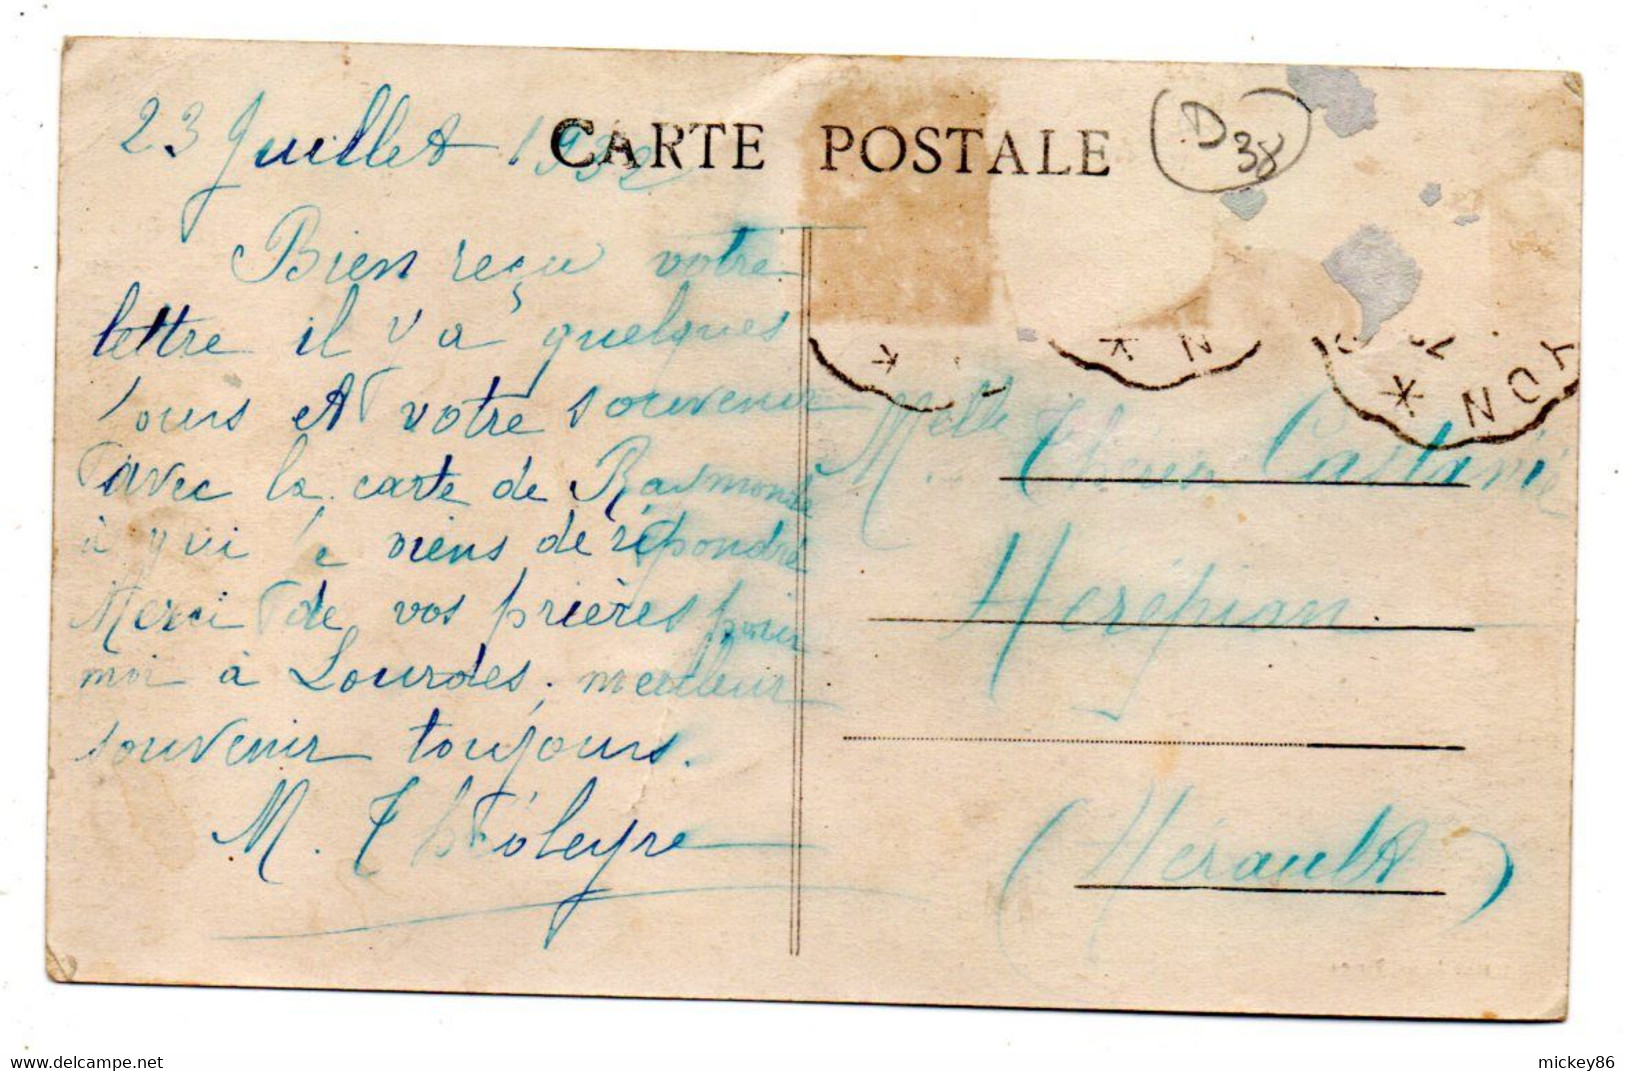 23 Juillet 1932
CARTE POSTALE
D38
Bien reçu votre
lettre il y a quelques
jours et votre souvenir
avec la carte de Raymonde
à qui je viens de répondre
Merci de vos prières pour
moi à Lourdes, meilleur
souvenir toujours.
M. Théoleyre
Melle
M. Castanié
Hérépian
(Hérault)
mickey86